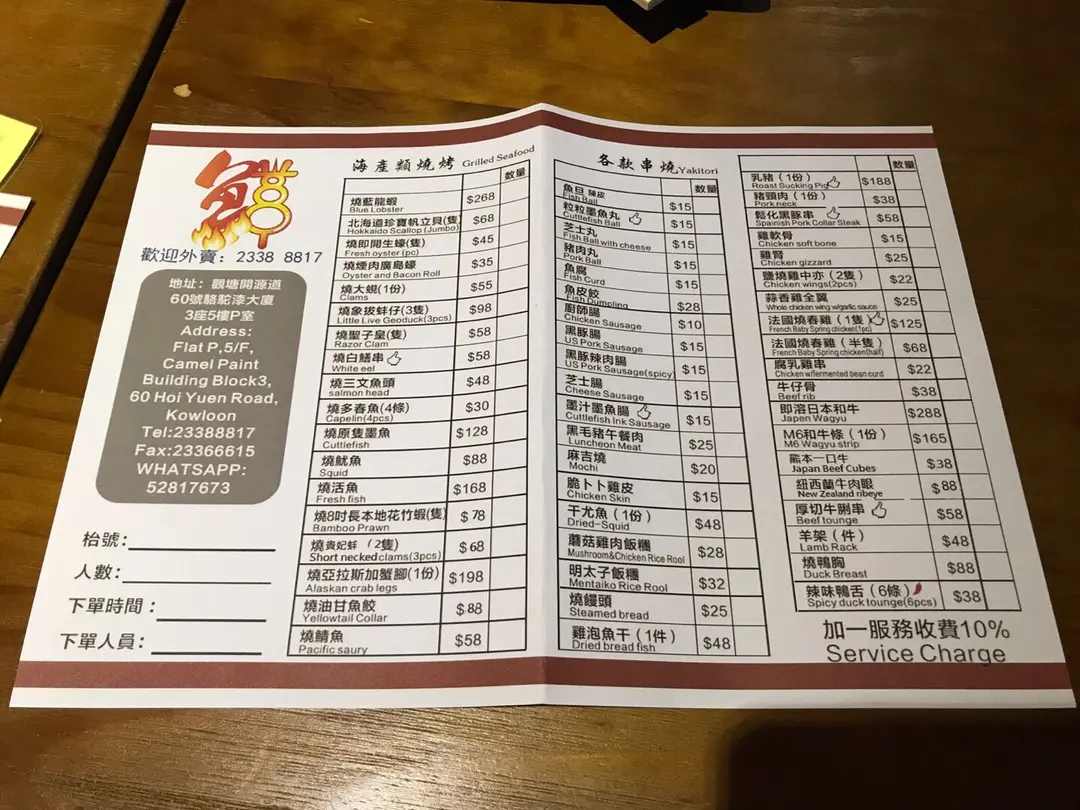 歡迎外賣：2338 8817
地址：觀塘開源道
60號駱駝漆大廈
3座5樓P室
Address:
Flat P,5/F,
Camel Paint
Building Block3,
60 Hoi Yuen Road,
Kowloon
Tel:23388817
Fax:23366615
WHATSAPP:
52817673
枱號：
人數：
下單時間：
下單人員：
海產類燒烤 Grilled Seafood
數量
燒藍龍蝦 $268
Blue Lobster
北海道珍寶帆立貝(隻) $68
Hokkaido Scallop (Jumbo)
燒即開生蠔(隻) $45
Fresh oyster (pc)
燒煙肉廣島蠔 $35
Oyster and Bacon Roll
燒大蜆(1份) $55
Clams
燒象拔蚌仔(3隻) $98
Little Live Geoduck(3pcs)
燒聖子皇(隻) $58
Razor Clam
燒白鱔串 $58
White eel
燒三文魚頭 $48
salmon head
燒多春魚(4條) $30
Capelin(4pcs)
燒原隻墨魚 $128
Cuttlefish
燒魷魚 $88
Squid
燒活魚 $168
Fresh fish
燒8吋長本地花竹蝦(隻) $78
Bamboo Prawn
燒貴妃蚌（2隻） $68
Short necked clams(3pcs)
燒亞拉斯加蟹腳(1份) $198
Alaskan crab legs
燒油甘魚鮫 $88
Yellowtail Collar
燒鯖魚 $58
Pacific saury
各款串燒 Yakitori
數量
魚旦 陳皮 $15
Fish Ball
粒粒墨魚丸 $15
Cuttlefish Ball
芝士丸 $15
Fish Ball with cheese
豬肉丸 $15
Pork Ball
魚腐 $15
Fish Curd
魚皮餃 $28
Fish Dumpling
廚師腸 $10
Chicken Sausage
黑豚腸 $15
US Pork Sausage
黑豚辣肉腸 $15
US Pork Sausage(spicy)
芝士腸 $15
Cheese Sausage
墨汁墨魚腸 $15
Cuttlefish Ink Sausage
黑毛豬午餐肉 $25
Luncheon Meat
麻吉燒 $20
Mochi
脆卜卜雞皮 $15
Chicken Skin
干尤魚（1份） $48
Dried-Squid
蘑菇雞肉飯糰 $28
Mushroom&Chicken Rice Rool
明太子飯糰 $32
Mentaiko Rice Rool
燒饅頭 $25
Steamed bread
雞泡魚干（1件） $48
Dried bread fish
數量
乳豬（1份） $188
Roast Sucking Pig
豬頸肉（1份） $38
Pork neck
鬆化黑豚串 $58
Spainish Pork Collar Steak
雞軟骨 $25
Chicken soft bone
雞腎 $15
Chicken gizzard
鹽燒雞中亦（2隻） $22
Chicken wings(2pcs)
蒜香雞全翼 $25
Whole chicken wing w/garlic sauce
法國燒春雞（1隻） $125
French Baby Spring chicken(1pc)
法國燒春雞（半隻） $68
French Baby Spring chicken(half)
腐乳雞串 $22
Chicken w/fermented bean curd
牛仔骨 $38
Beef rib
即溶日本和牛 $288
Japen Wagyu
M6和牛條（1份） $165
M6 Wagyu strip
熊本一口牛 $38
Japan Beef Cubes
紐西蘭牛肉眼 $88
New Zealand ribeye
厚切牛脷串 $58
Beef tounge
羊架（件） $48
Lamb Rack
燒鴨胸 $88
Duck Breast
辣味鴨舌（6條） $38
Spicy duck tounge(6pcs)
加一服務收費10%
Service Charge